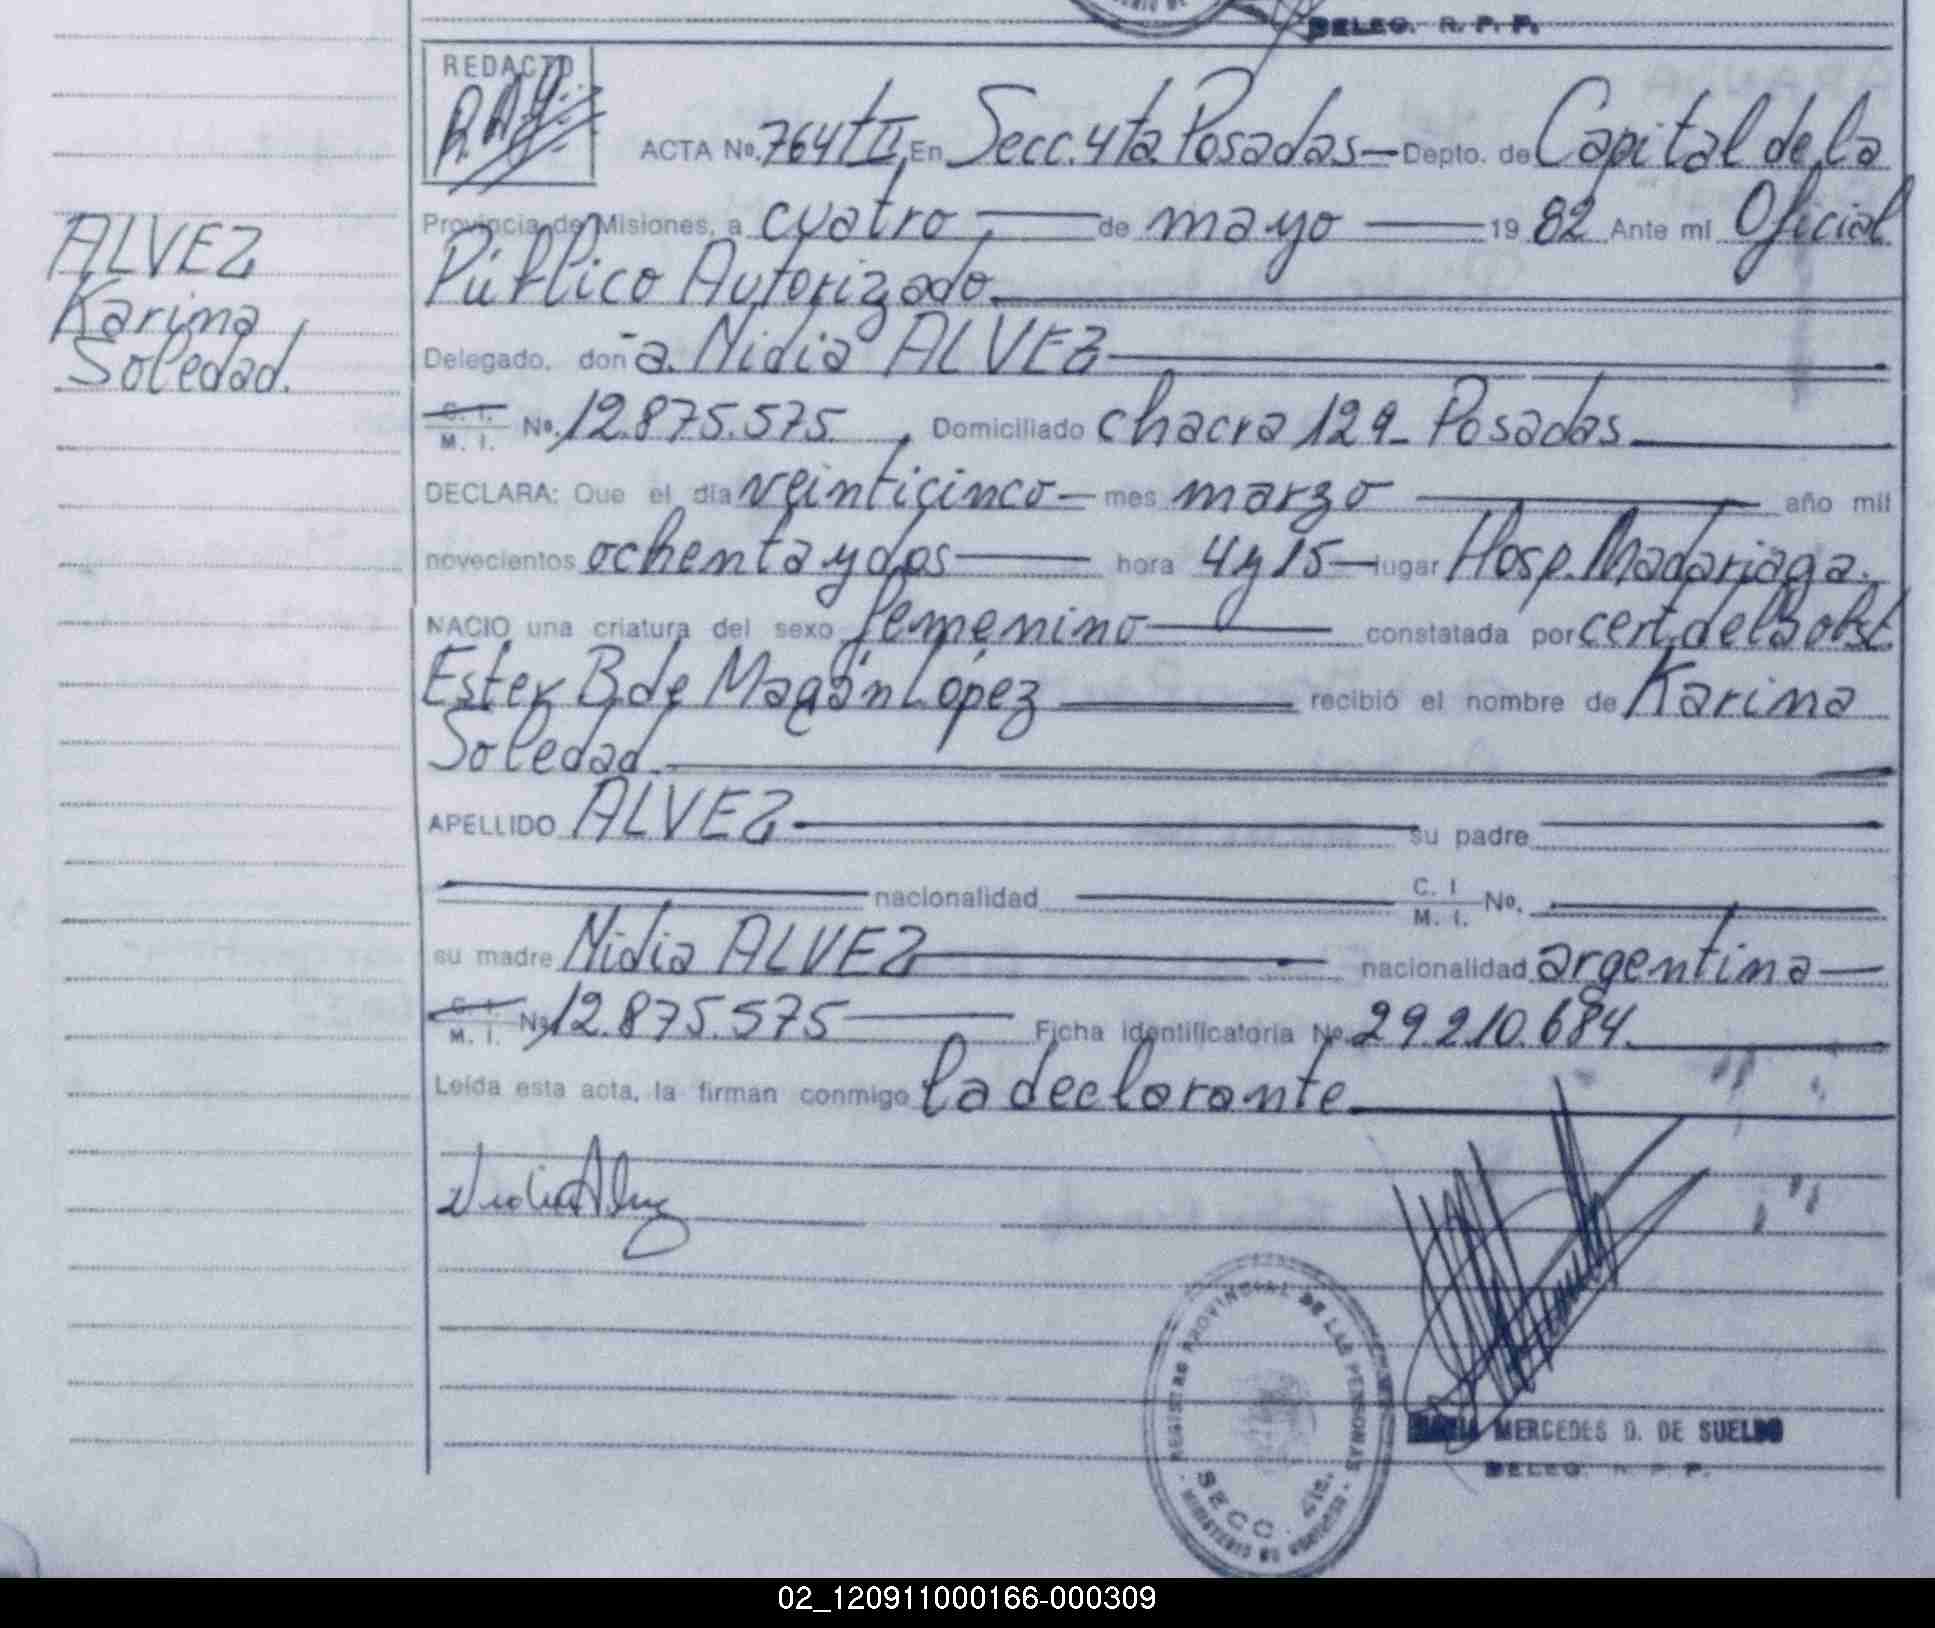 DELEG. R. P. P.
REDACTO
ACTA No. 764 t II, En Secc. 4ta. Posadas — Depto. de Capital de la
Provincia de Misiones, a cuatro — de mayo — 19 82 Ante mi Oficial
Público Autorizado.
Delegado, doña. Nidia ALVEZ
ALVEZ
Karina
Soledad.
C. I.
M. I. No. 12.875.575. , Domiciliado chacra 129 - Posadas
DECLARA: Que el día veinticinco — mes marzo — año mil
novecientos ochenta y dos — hora 4 y 15 — lugar Hosp. Madariaga.
NACIO una criatura del sexo femenino — constatada por cert. de la obst.
Ester B. de Magán López — recibió el nombre de Karina
Soledad.
APELLIDO ALVEZ — su padre —
— nacionalidad — C. I. M. I. No. —
su madre Nidia ALVEZ — nacionalidad argentina —
C. I.
M. I. No. 12.875.575 — Ficha identificatoria No. 29.210.684.
Leída esta acta, la firman conmigo la declarante.
Nidia Alvez
REGISTRO PROVINCIAL DE LAS PERSONAS
SECC. 4ta.
MARIA MERCEDES D. DE SUELDO
DELEG. R. P. P.
02_120911000166-000309